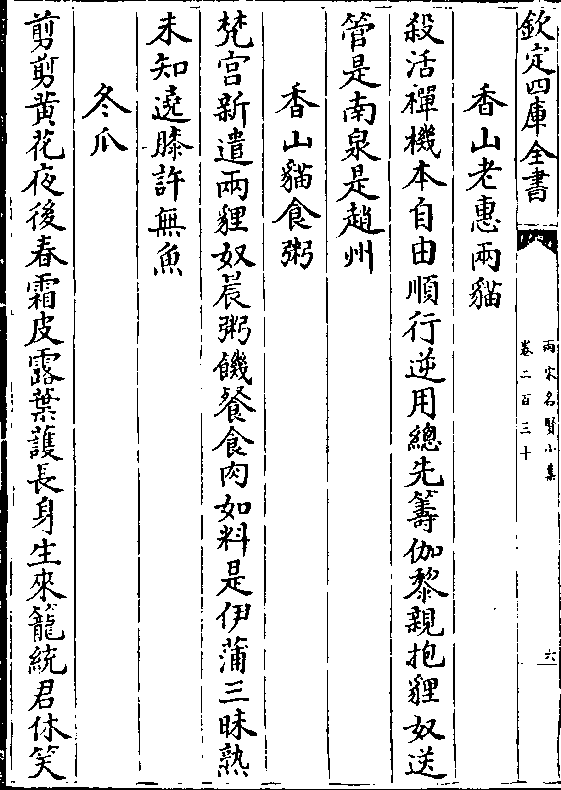 欽定四庫全書
兩宋名賢小集
卷二百三十
六
香山老惠兩貓
殺活禪機本自由順行逆用總先籌伽黎親抱貍奴送
管是南泉是趙州
香山貓食粥
梵宫新遣兩貍奴晨粥饑餐食肉如料是伊蒲三昧熟
未知遶膝許無魚
冬瓜
剪剪黄花夜後春霜皮露葉護長身生來籠統君休笑